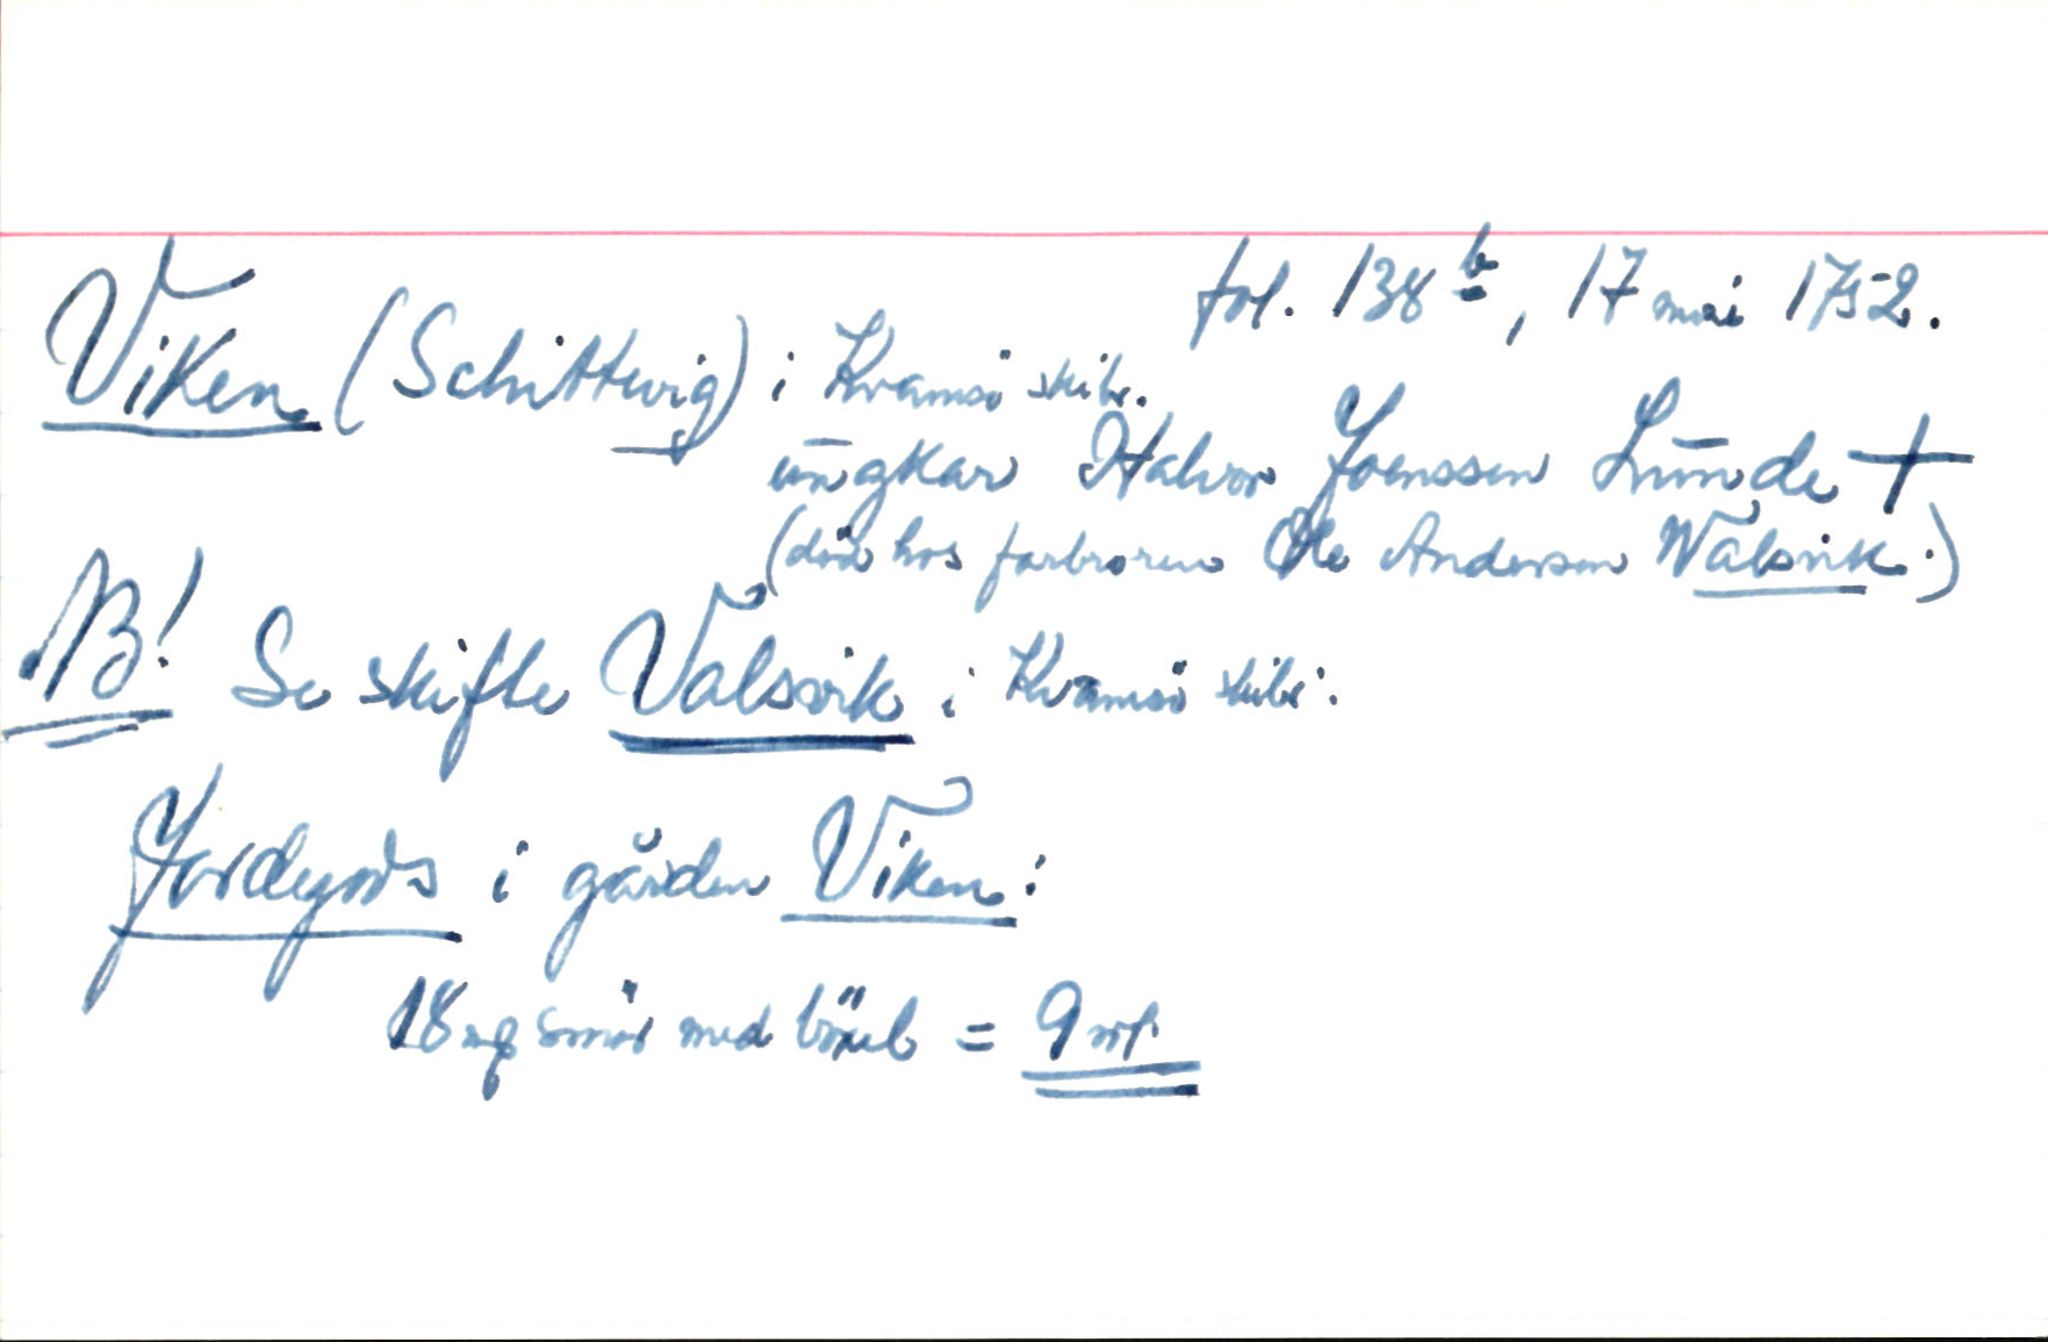 fol. 138 b, 17 mai 1752.
Viken (Schittwig) i Kvamsö skibr.
ungkar Halvor Joenssen Lunde +
(död hos farbroren Ole Andersen Walsvik.)
NB! Se skifte Valsvik i Kvamsö skibr.
Jordegods i gården Viken:
18 mg smör med böxel = 9 rd.